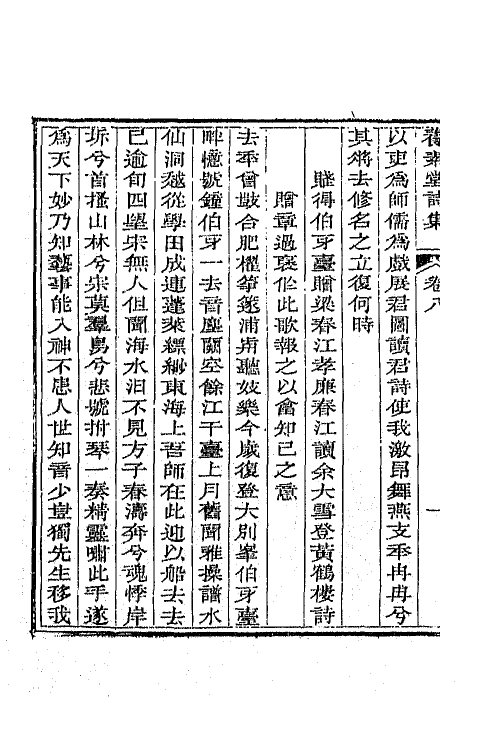 養素堂詩集 卷八 一
以吏為師儒為戲展君圖讀君詩使我激昂舞燕支年冉冉兮
其將去修名之立復何時
賦得伯牙臺贈梁春江孝廉春江讀余大雪登黃鶴樓詩
贈章過襃作此歌報之以會知己之意
去年曾鼓合肥櫂箏篴浦前聽妓樂今歲復登大別峯伯牙臺
畔憶號鐘伯牙一去音塵闃空餘江干臺上月舊聞雅操譜水
仙洞越從學田成連蓬萊縹緲東海上吾師在此迎以船去去
已逾旬四望寂無人但聞海水汨不見方子春濤奔兮魂悸岸
坼兮首搔山林兮寂莫羣鳥兮悲號拊琴一奏精靈嘯此手遂
為天下妙乃知藝事能入神不患人世知音少豈獨先生移我